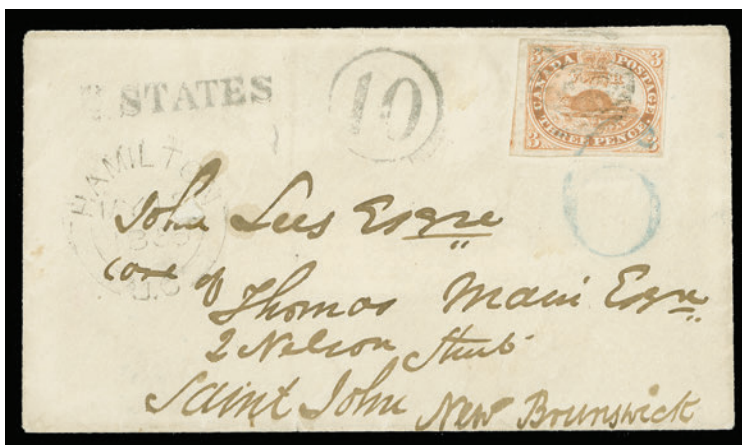 U. STATES
10
3 CANADA POSTAGE 3
3 THREE PENCE. 3
HAMILTON
U.C.
John Lees Esqre
care of
Thomas Main Esqre
2 Nelson Street
Saint John New Brunswick